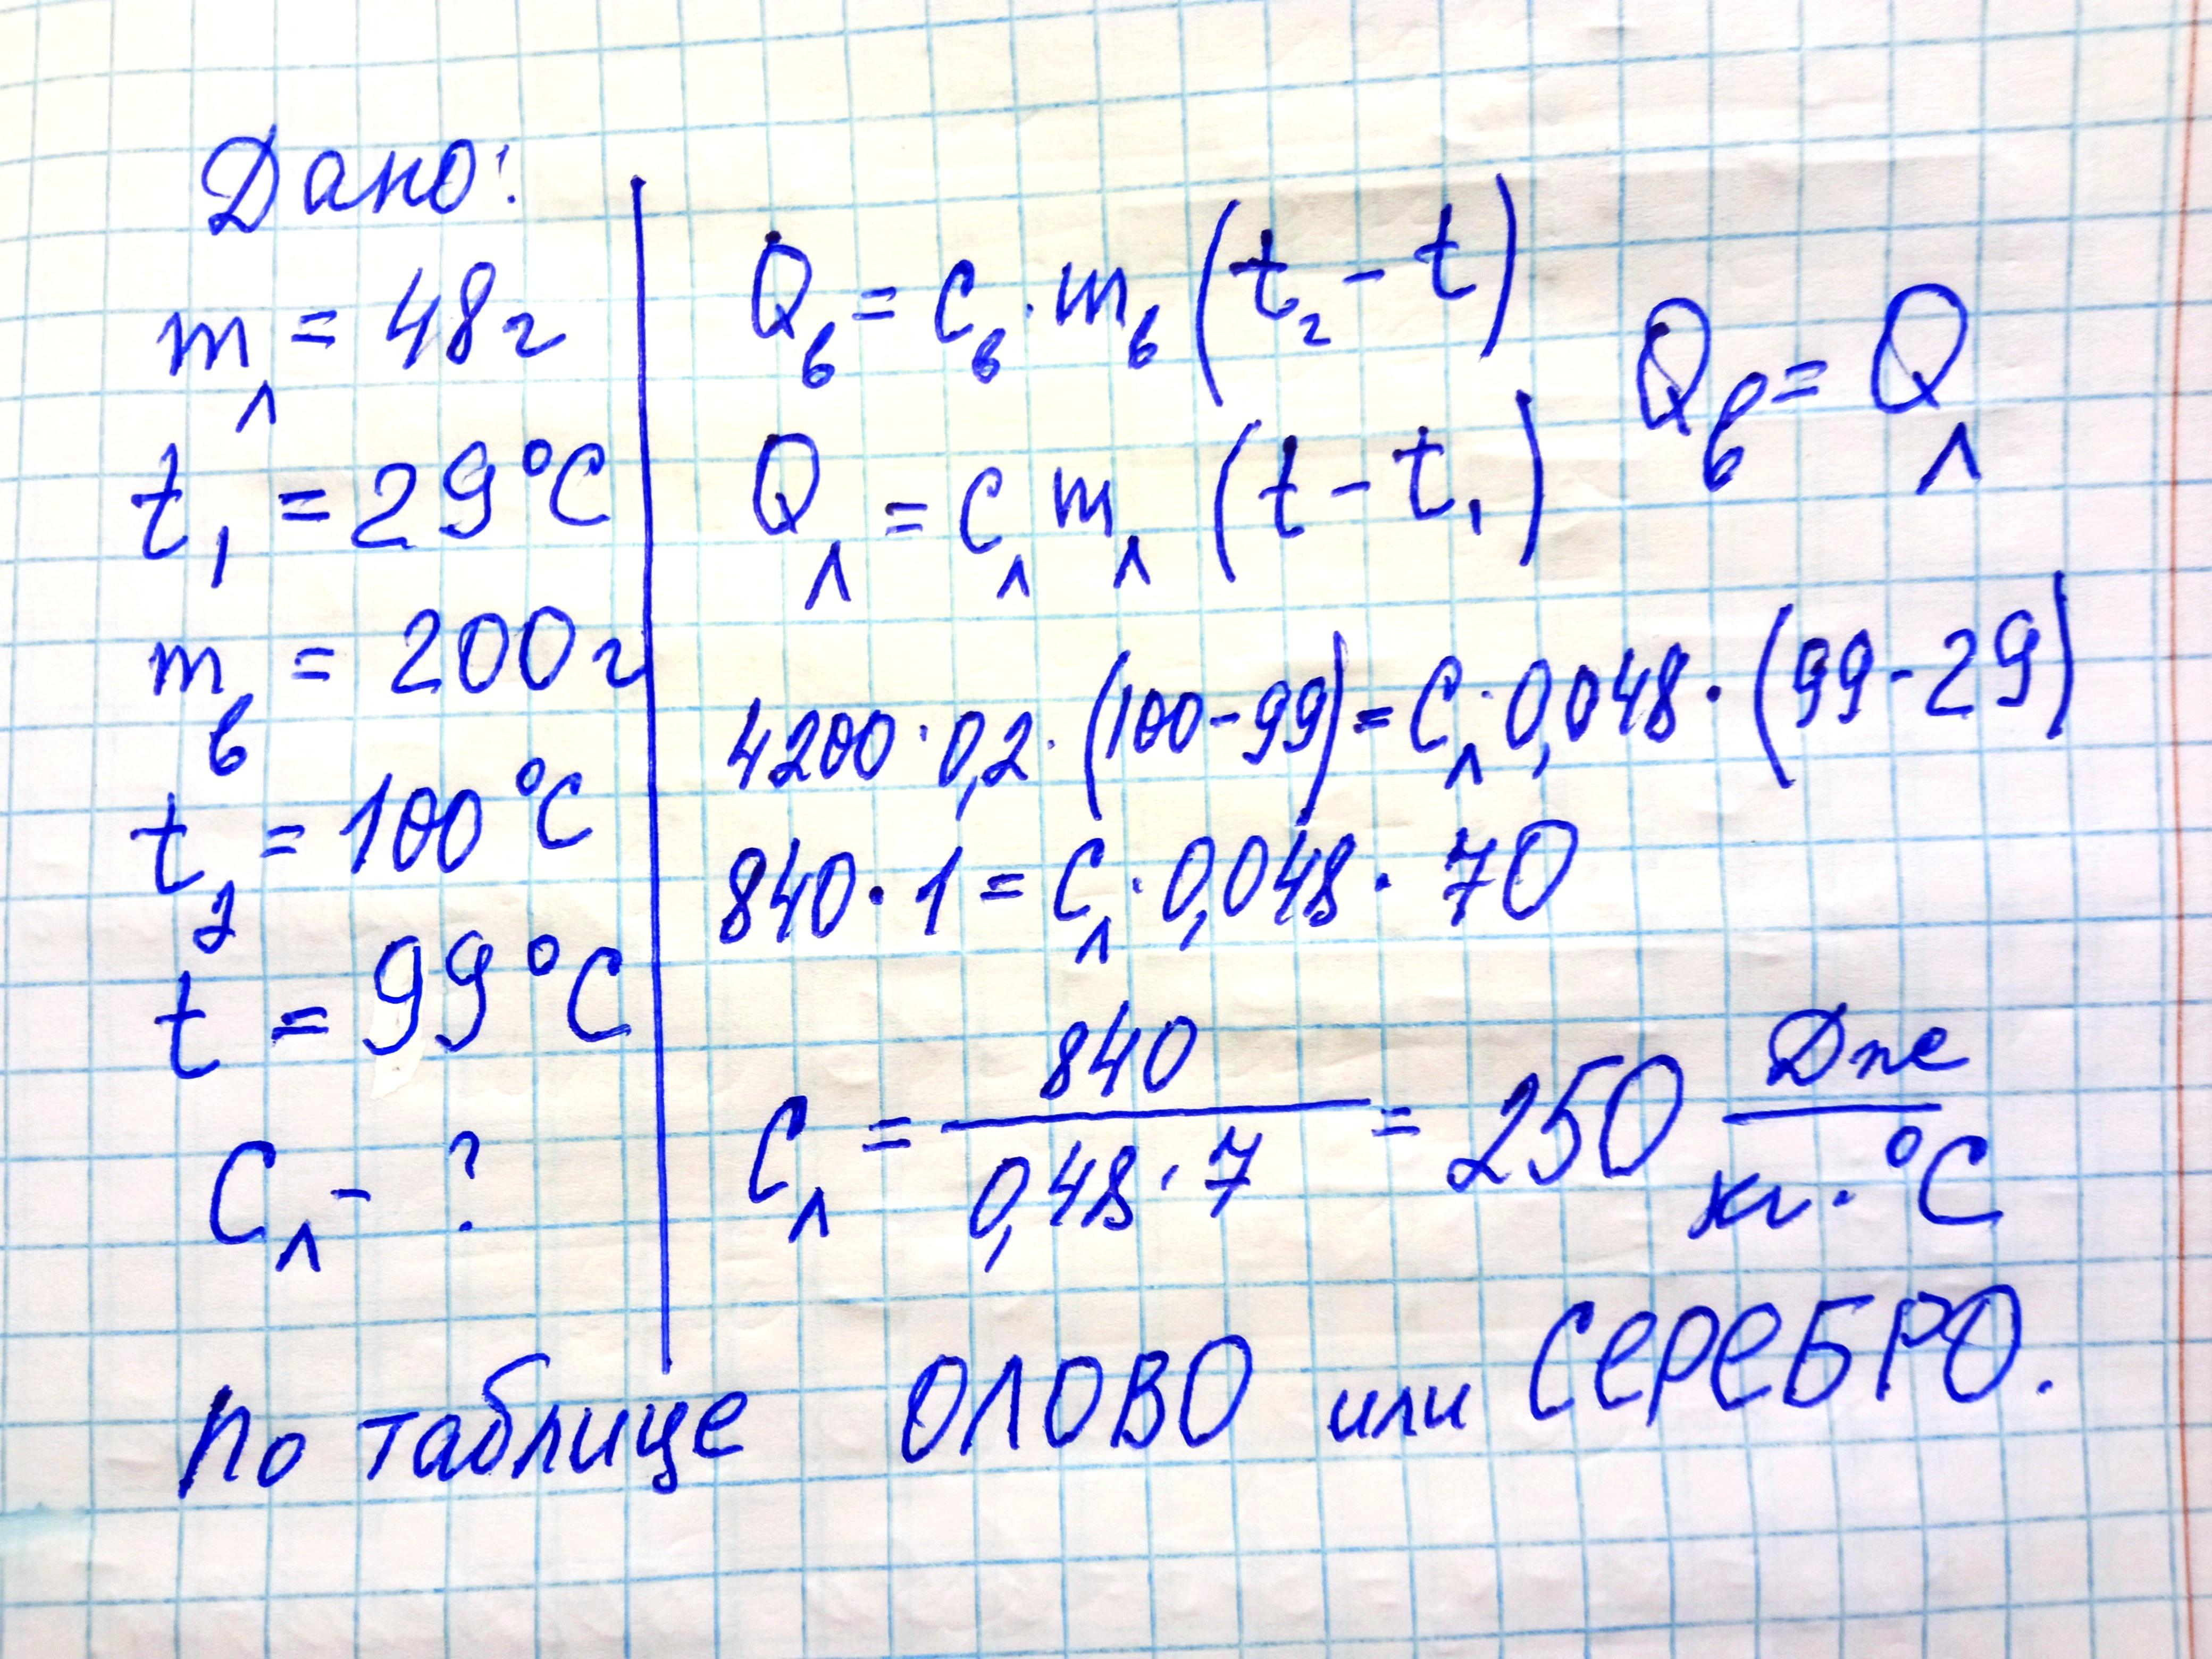 Дано:
m л = 48 г
t₁ = 29 °C
m в = 200 г
t₂ = 100 °C
t = 99 °C
C л - ?
Q в = C в · m в (t₂ - t)
Q л = C л m л (t - t₁)
Q в = Q л
4200 · 0,2 · (100 - 99) = C л · 0,048 · (99 - 29)
840 · 1 = C л · 0,048 · 70
C л = 840 / 0,48 · 7 = 250 Дже / кг · °C
По таблице ОЛОВО или СЕРЕБРО.